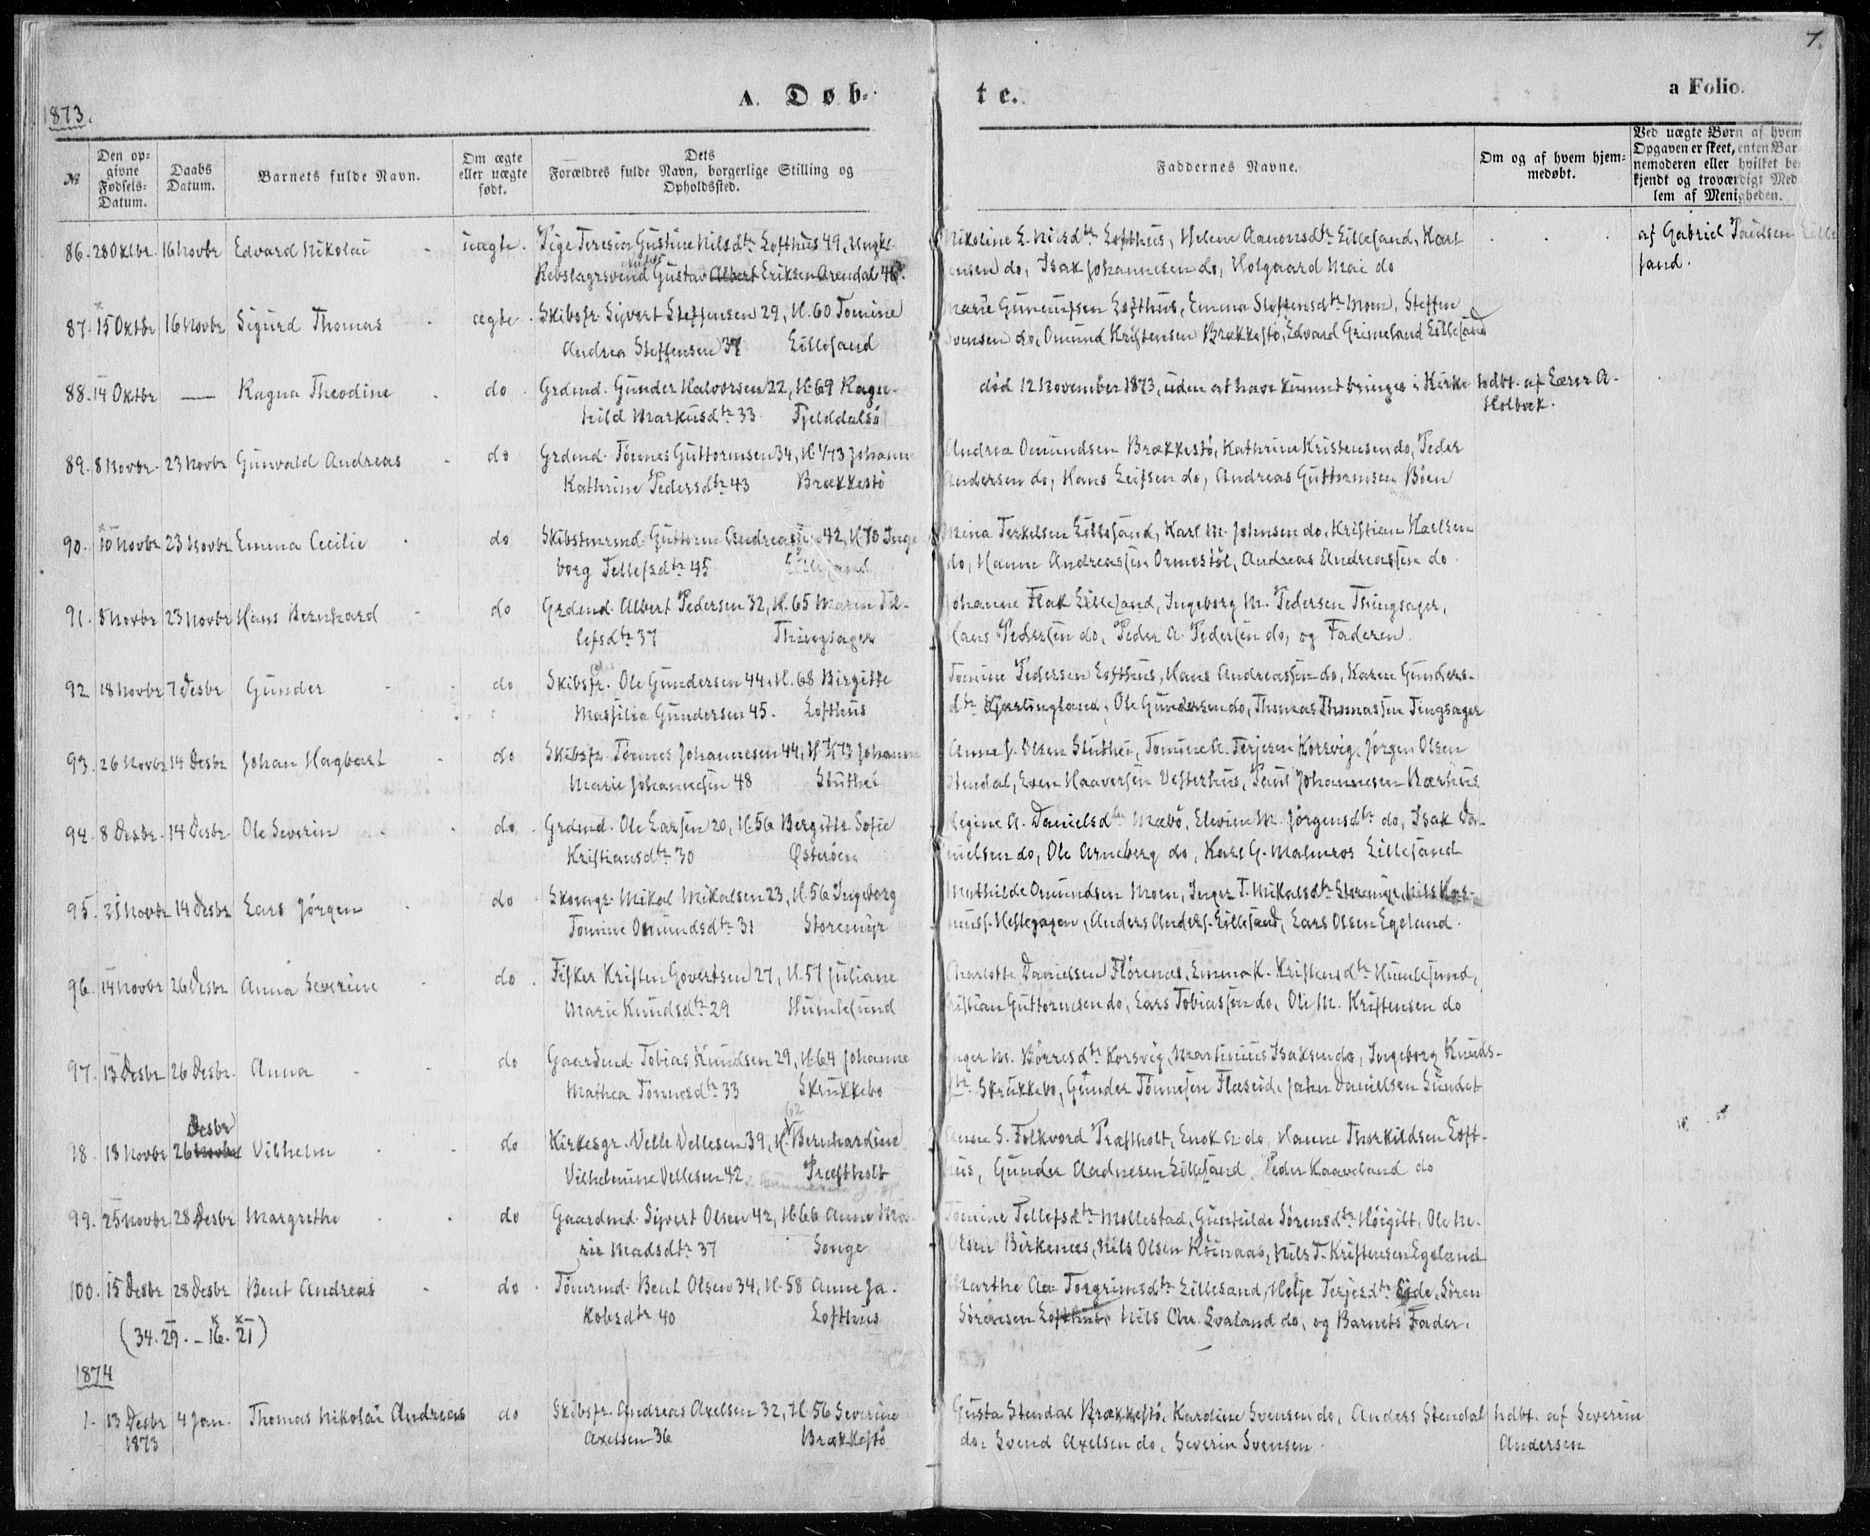 7.
1873.
A. Døb-
te.
a Folio.
№
Den op-
givne
Fødsels-
Datum.
Daabs
Datum.
Barnets fulde Navn.
Om ægte
eller uægte
født.
Dets
Forældres fulde Navn, borgerlige Stilling og
Opholdssted.
Faddernes Navne.
Om og af hvem hjem-
medøbt.
Ved uægte Børn af hvem
Opgaven er skeet, enten Bar-
nemoderen eller hvilket be-
kjendt og troværdigt Med-
lem af Menigheden.
86. 28 Oktbr 16 Novbr Edvard Nikolai uægte. Pige Teresia Gustine Nilsdtr Lofthus 49, Ungkl
Nikoline E. Nilsdtr Lofthus, Helene Aanonsdtr Lillesand, Karl
af Gabriel Paulsen Lille
Rebslagrsvend Gustav Albert Eriksen Arendal 46.
Jensen do, Isak Johannesen do, Holgaard Mai do
sand.
87. 15 Oktbr 16 Novbr Sigurd Thomas ægte. Skibsfr. Syvert Steffensen 29, N. 60 Tomine
Marie Guneufsen Lofthus, Emma Steffensdtr Moen, Steffen
Andrea Steffensen 37 Lillesand
Svensen do, Omund Kristensen Brækkestø, Edvard Grimeland Lillesand
88. 14 Oktbr — Ragna Theodine do Grdmd. Gunder Halvorsen 22, N. 69 Ragn-
død 12 November 1873, uden at have kunnet bringes i Kirke
hdbt. af Lærer A.
hild Markusdtr 33 Fjelddalsø
Holbæk.
89. 8 Novbr. 23 Novbr Gunvald Andreas do Grdmd. Tønnes Guttormsen 34, N 1/73 Johann
Andrea Omundsen Brækkestø, Kathrine Kristensen do, Peder
Kathrine Pedersdtr 43 Brækkestø
Andersen do, Hans Leifsen do, Andreas Guttormsen Bøen
90. 10 Novbr 23 Novbr Emma Cecilie do Skibstmrmd. Guttorm Andreassen 42, N 70 Inge
Mina Terkelsen Lillesand, Karl M. Johnsen do, Kristian Karlsen
borg Tellefsdtr 45 Lillesand
do, Hanne Andreassen Ormestøl, Andreas Andreassen do
91. 8 Novbr 23 Novbr Hans Bernhard do Grdmd. Albert Pedersen 32, N. 65 Maren Tel-
Johanne Flak Lillesand, Ingeborg M. Pedersen Thingsager,
lefsdtr 37 Thingsager
Hans Pedersen do, Peder A. Pedersen do, og Faderen.
92 18 Novbr 7 Desbr Gunder do Skibsfr. Ole Gundersen 44, N. 68 Birgitte
Tomine Pedersen Lofthus, Hans Andreassen do, Karen Gunders-
Massilia Gundersen 45. Lofthus
dtr Kjærlingland, Ole Gundersen do, Thomas Thomassen Tingsager
93. 26 Novbr 14 Desbr Johan Hagbart do Skibsfr. Tønnes Johannesen 44, N 1/73 Johanne
Anne J. Olsen Stuthei, Tomine A. Terjesen Korsvig, Jørgen Olsen
Marie Johannesen 48 Stuthei
Stendal, Even Haaversen Vesterhus, Paul Johannesen Kærhus
94. 8 Desbr. 14 Desbr. Ole Severin do. Grdmd. Ole Larsen 20, N. 56 Bergitte Sofie
Regine A. Danielsdtr Mæbø, Elevine M. Jørgensdtr do, Isak Da-
Kristiansdtr 30 Østerøen
nielsen do, Ole Arneberg do, Karl G. Malmros Lillesand
95. 25 Novbr 14 Desbr Lars Jørgen do Skomgr. Mikal Mikalsen 23, N. 56 Ingeborg
Mathilde Omundsen Moen, Inger T. Mikalsdtr Storemyr, Nils Ras-
Tomine Omundsdtr 31 Storemyr
muss. Heslegagen, Anders Anders. Lillesand, Lars Olsen Egeland.
96. 14 Novbr 26 Desbr Anna Severine do Fisker Kristen Govertsen 27, N. 57 Juliane
Charlotte Danielsen Flörenes, Emma K. Kristensdtr Humlesund,
Marie Knudsdtr 29 Humlesund
Kristian Guttormsen do, Lars Tobiassen do, Ole M. Kristensen do
97. 13 Desbr 26 Desbr. Anna do Gaardmd. Tobias Knudsen 29, N. 64 Johanne
Inger M. Børresdtr Korsvig, Martinius Isaksen do, Ingeborg Knuds-
Mathea Tønnesdtr 33 Skrukkebo
dtr. Skrukkebo, Gunder Tønnesen Flæseid, John Danielsen Sundet
98. 18 Novbr 26 Novbr Desbr Vilhelm do Kirkesgr. Velle Vellesen 39, N. 62 Bernhardine
Anne S. Folkvord Præstholt, Enok A. do, Hanne Thorkildsen Loft-
Vilhelmine Vellesen 42. Præstholt
hus, Gunder Aadnesen Lillesand, Peder Kaaveland do
99. 25 Novbr 28 Desbr Margrethe do Gaardmd. Syvert Olsen 42, N. 66 Anne Ma-
Tomine Tellefsdtr Møllestad, Gunhilde Sørensdtr Høigilt, Ole Ne.
rie Madsdtr 37 Songe
Olsen Birkenæs, Nils Olsen Roinaas, Nils T. Kristensen Egeland
100. 15 Desbr 28 Desbr Bent Andreas do Tømrmd. Bent Olsen 34, N. 58 Anne Ja-
Marthe Aa Torgrimsdtr Lillesand, Helje Terjesdtr Eide, Søren
kobsdtr 40 Lofthus
Sørensen Lofthus, Nils Chr. Evaland do, og Barnets Fader.
(34. 29. – 16. 21)
1874
1. 13 Desbr 4 Jan. Thomas Nikolai Andreas do Skibsfr. Andreas Axelsen 32, N. 56 Severine
Gusta Stendal Brækkestø, Karoline Svensen do, Anders Stendal
hdbt. af Severine
1873
Axelsen 36 Brækkestø
do, Svend Axelsen do, Severin Svensen.
Andersen